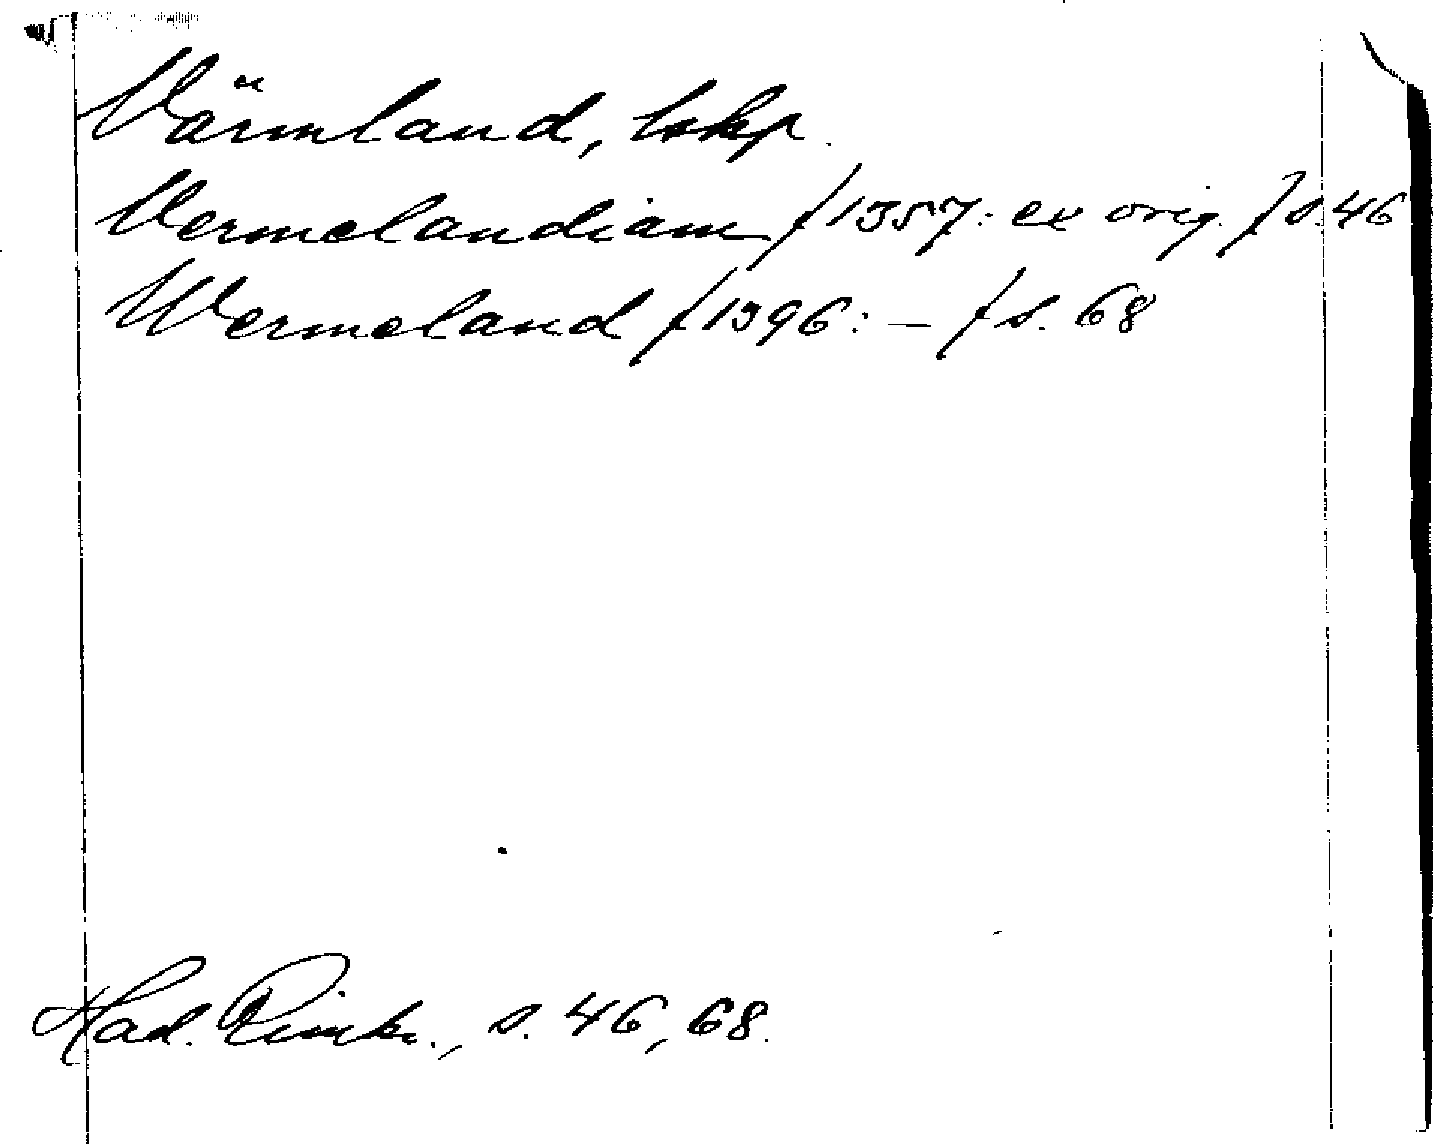 Värmland, lskp.
Vermelandiam /1357: ex orig./ s. 46
Wermeland /1396: – / s. 68
Had. Rimkr., s. 46, 68.